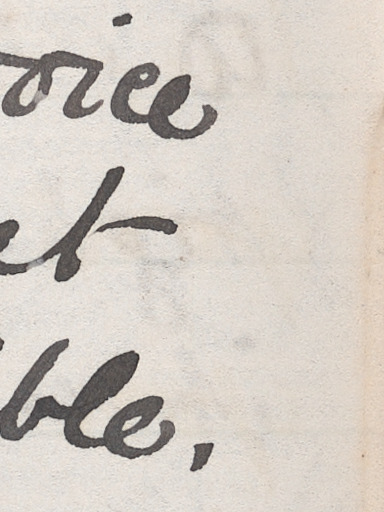 voice
et
ble,